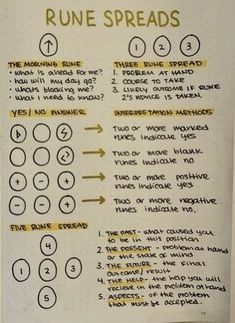 RUNE SPREADS
1 2 3
THE MORNING RUNE
• what is ahead for me?
• how will my day go?
• whats blocking me?
• what I need to know?
THREE RUNE SPREAD
1. PROBLEM AT HAND
2. COURSE TO TAKE
3. LIKELY OUTCOME IF RUNE
2'S ADVICE IS TAKEN
YES/NO ANSWER
INTERPRETATION METHODS
TWO OR MORE MARKED
RUNES INDICATE YES
TWO OR MORE BLANK
RUNES INDICATE NO
+ - +
TWO OR MORE POSITIVE
RUNES INDICATE YES
- + -
TWO OR MORE NEGATIVE
RUNES INDICATE NO.
FIVE RUNE SPREAD
4
2 1 3
5
1. THE PAST - WHAT CAUSED YOU
TO BE IN THIS POSITION
2. THE PRESENT - PROBLEM AT HAND
OR THE STATE OF MIND
3. THE FUTURE - THE FINAL
OUTCOME/RESULT
4. THE HELP - THE HELP YOU WILL
RECIEVE IN THE PROBLEM AT HAND
5. ASPECTS - OF THE PROBLEM
THAT MUST BE ACCEPTED.